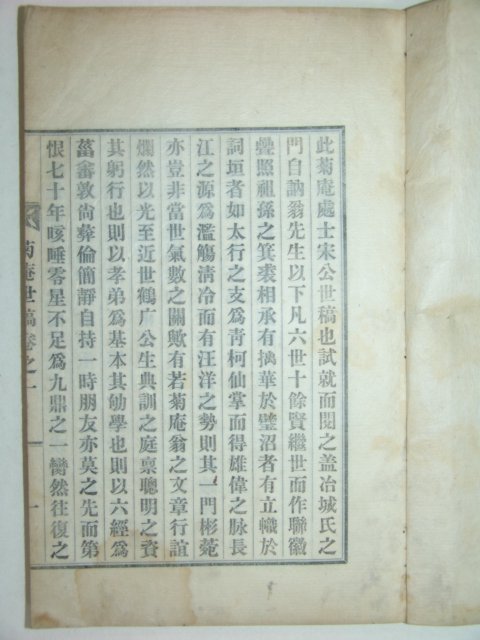 此菊庵處士宋公世稿也試就而閱之盖冶城氏之
門自訥翁先生以下凡六世十餘賢繼世而作聯徽
疊照祖孫之箕裘相承有摛華於璧沼者有立幟於
詞垣者如太行之支爲靑柯仙掌而得雄偉之脉長
江之源爲濫觴淸冷而有汪洋之勢則其一門彬菀
亦豈非當世氣數之關歟有若菊庵翁之文章行誼
爛然以光至近世鶴广公生典訓之庭禀聰明之資
其躬行也則以孝弟爲基本其劬學也則以六經爲
菑畬敦尙葬倫簡靜自持一時朋友亦莫之先而第
恨七十年咳唾零星不足爲九鼎之一臠然往復之
菊庵世稿卷之一
一